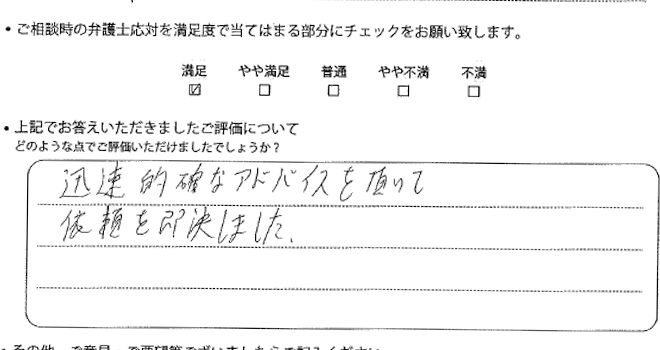 • ご相談時の弁護士応対を満足度で当てはまる部分にチェックをお願い致します。
満足 やや満足 普通 やや不満 不満
☑ ☐ ☐ ☐ ☐
• 上記でお答えいただきましたご評価について
どのような点でご評価いただけましたでしょうか?
迅速的確なアドバイスを頂いて
依頼を即決しました。